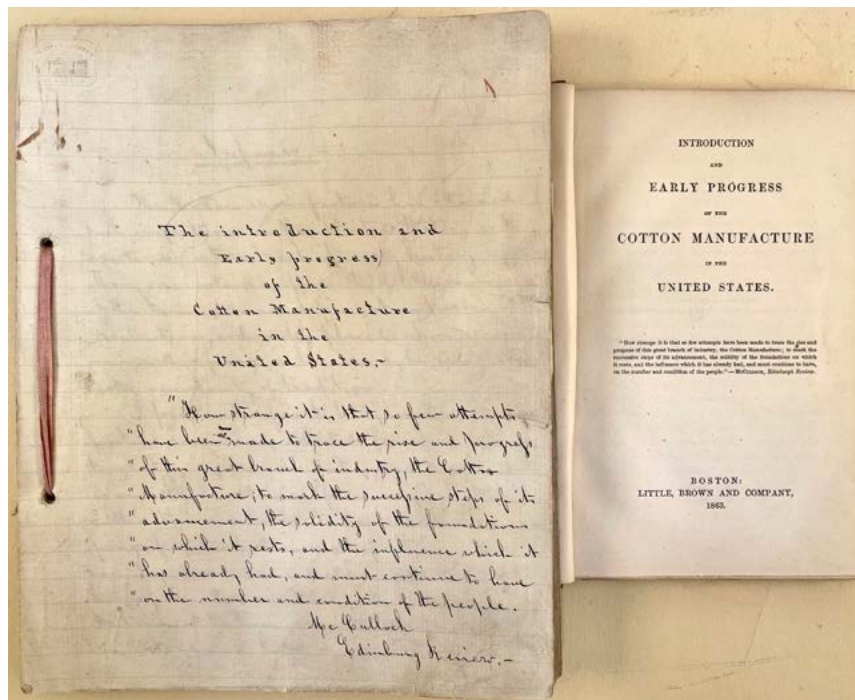 The introduction and
Early progress
of the
Cotton Manufacture
in the
United States.-
"How strange it is that so few attempts
"have been made to trace the rise and progress
"of this great branch of industry, the Cotton
"Manufacture; to mark the successive steps of its
"advancement, the solidity of the foundations
"on which it rests, and the influence which it
"has already had, and must continue to have
"on the number and condition of the people.
Mc Culloch
Edinburg Review.-
INTRODUCTION
AND
EARLY PROGRESS
OF THE
COTTON MANUFACTURE
IN THE
UNITED STATES.
"How strange it is that so few attempts have been made to trace the rise and
progress of this great branch of industry, the Cotton Manufacture; to mark the
successive steps of its advancement, the solidity of the foundations on which
it rests, and the influence which it has already had, and must continue to have,
on the number and condition of the people."—McCulloch, Edinburgh Review.
BOSTON:
LITTLE, BROWN AND COMPANY,
1863.